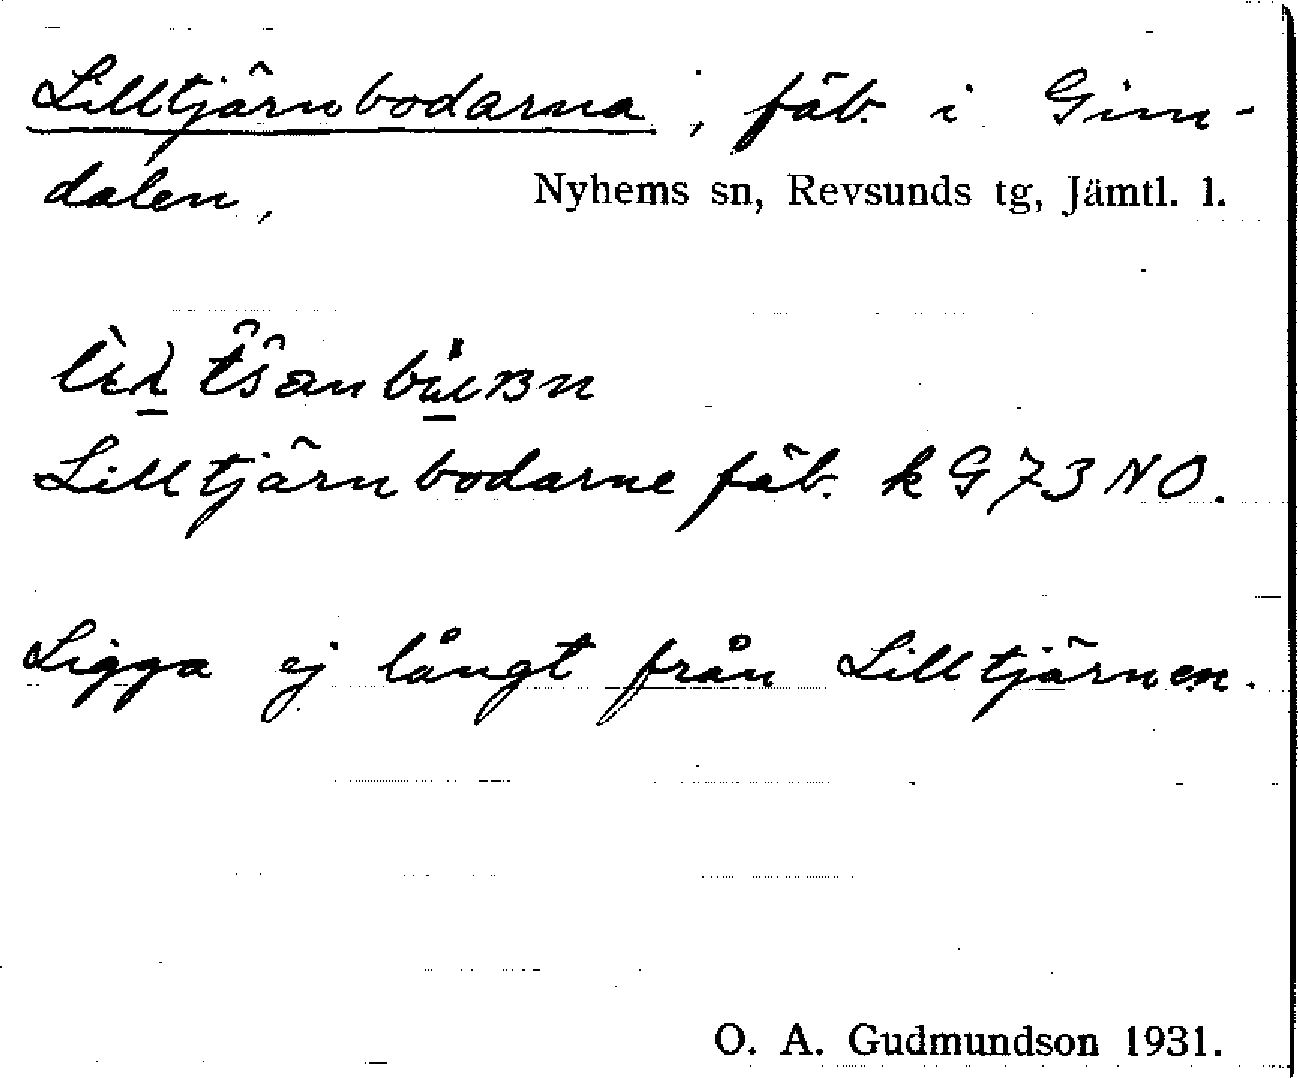 Lilltjärnbodarna, fäb. i Gim-
dalen,
Nyhems sn, Revsunds tg, Jämtl. l.
Lilltjärnbodarne fäb. k G 73 NO.
Ligga ej långt från Lilltjärnen.
O. A. Gudmundson 1931.